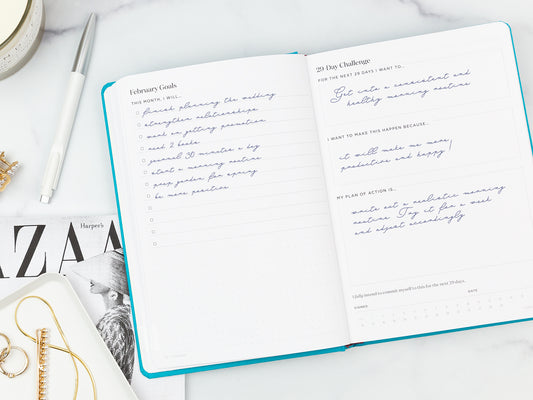 February Goals
THIS MONTH, I WILL...
finish planning the wedding
strengthen relationships
work on getting promotion
read 2 books
journal 30 minutes a day
start a morning routine
prep garden for spring
be more positive
29-Day Challenge
FOR THE NEXT 29 DAYS I WANT TO...
Get into a consistent and
healthy morning routine
I WANT TO MAKE THIS HAPPEN BECAUSE...
it will make me more
productive and happy!
MY PLAN OF ACTION IS...
write out a realistic morning
routine. Try it for a week
and adjust accordingly
I fully intend to commit myself to this for the next 29 days.
SIGNED
DATE
Harper's
AZAA